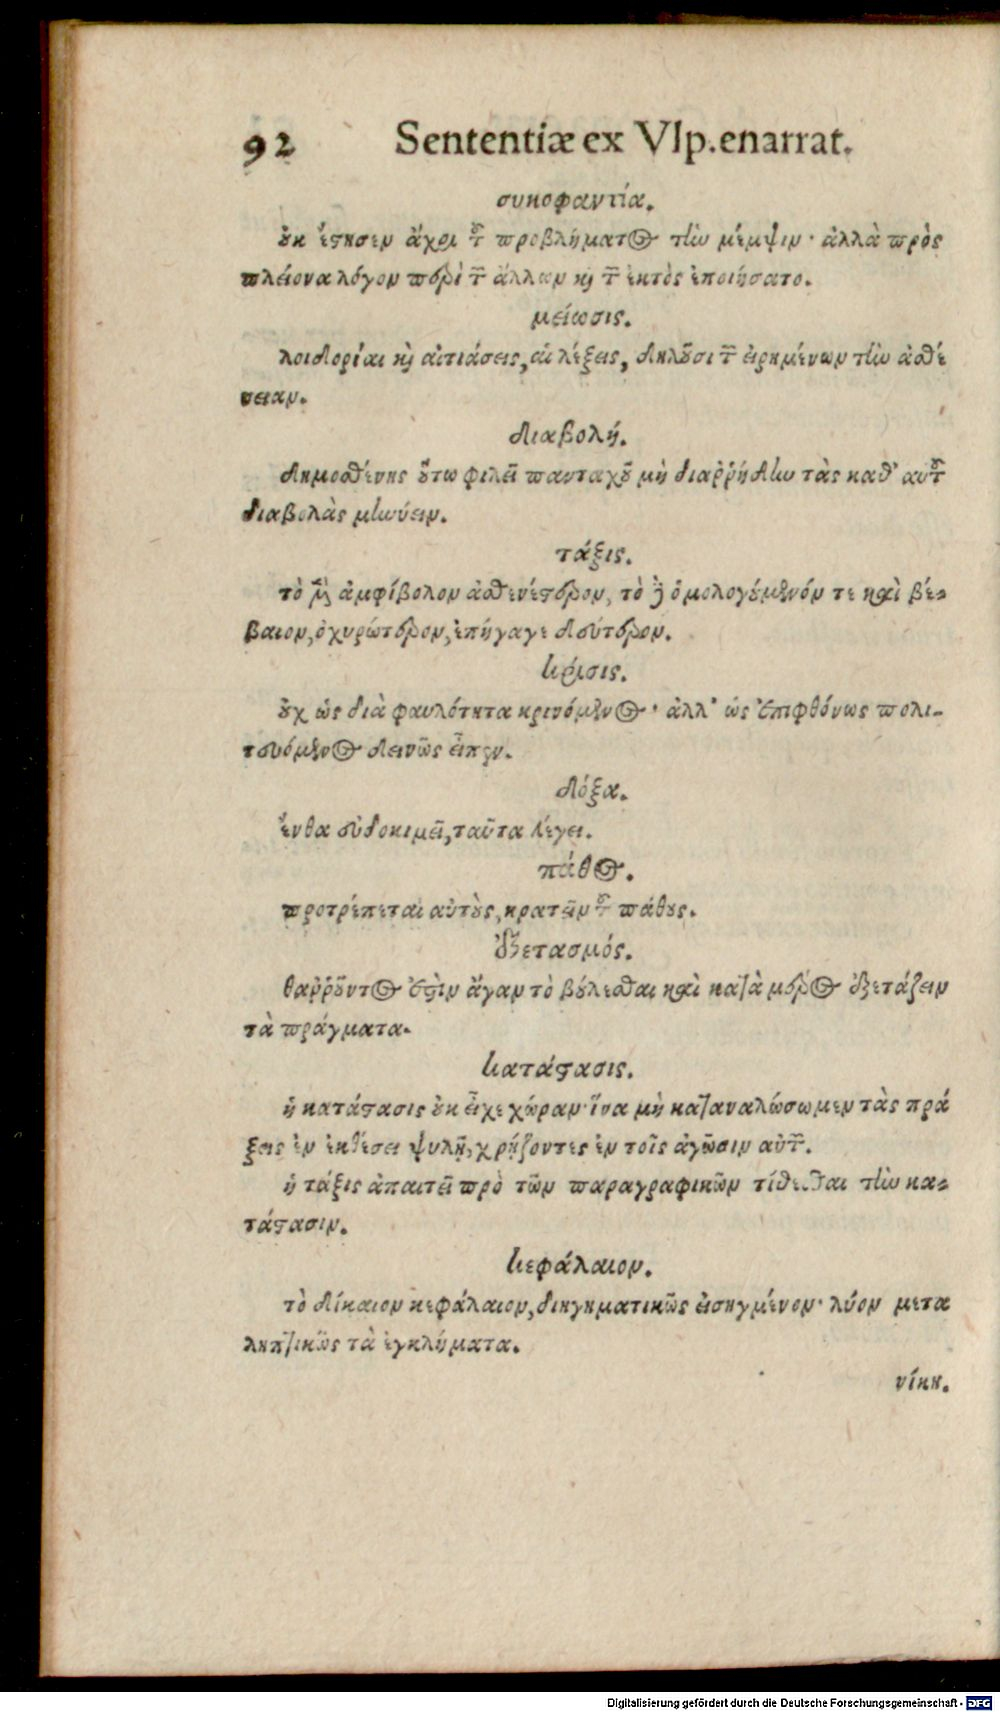 92 Sententiæ ex Vlp. enarrat.
συκοφαντία.
οὐκ ἔστησεν ἄχρι τοῦ προβλήματος τὴν μέμψιν· ἀλλὰ πρὸς
πλείονα λόγον περὶ τῶν ἄλλων καὶ τῶν ἐκτὸς ἐποιήσατο.
μείωσις.
λοιδορίαι καὶ αἰτιάσεις, αἱ λέξεις, δηλοῦσι τῶν εἰρημένων τὴν ἀσθέ
νειαν.
διαβολή.
Δημοσθένης οὕτω φιλεῖ πανταχοῦ μὴ διαῤῥήδην τὰς καθ' αὑτοῦ
διαβολὰς μηνύειν.
τάξις.
τὸ μὲν ἀμφίβολον ἀσθενέστερον, τὸ δὲ ὁμολογούμενόν τε καὶ βέ-
βαιον, ὀχυρώτερον, ἐπήγαγε δεύτερον.
κρίσις.
οὐχ ὡς διὰ φαυλότητα κρινόμενος· ἀλλ' ὡς ἐπιφθόνως πολι-
τευόμενος δεινῶς εἶπεν.
δόξα.
ἔνθα εὐδοκιμεῖ, ταῦτα λέγει.
πάθος.
προτρέπεται αὐτοὺς, κρατεῖν τοῦ πάθους.
ἐξετασμός.
θαῤῥοῦντος ἐστὶν ἄγαν τὸ βούλεσθαι καὶ κατὰ μέρος ἐξετάζειν
τὰ πράγματα.
κατάστασις.
ἡ κατάστασις οὐκ εἶχε χώραν· ἵνα μὴ καταναλώσωμεν τὰς πρά
ξεις ἐν ἐκθέσει ψιλῇ, χρῄζοντες ἐν τοῖς ἀγῶσιν αὐτῶν.
ἡ τάξις ἀπαιτεῖ πρὸ τῶν παραγραφικῶν τίθεσθαι τὴν κα-
τάστασιν.
κεφάλαιον.
τὸ δίκαιον κεφάλαιον, διηγηματικῶς εἰσηγμένον· λύον μετα
ληπτικῶς τὰ ἐγκλήματα.
νίκη.
Digitalisierung gefördert durch die Deutsche Forschungsgemeinschaft - DFG